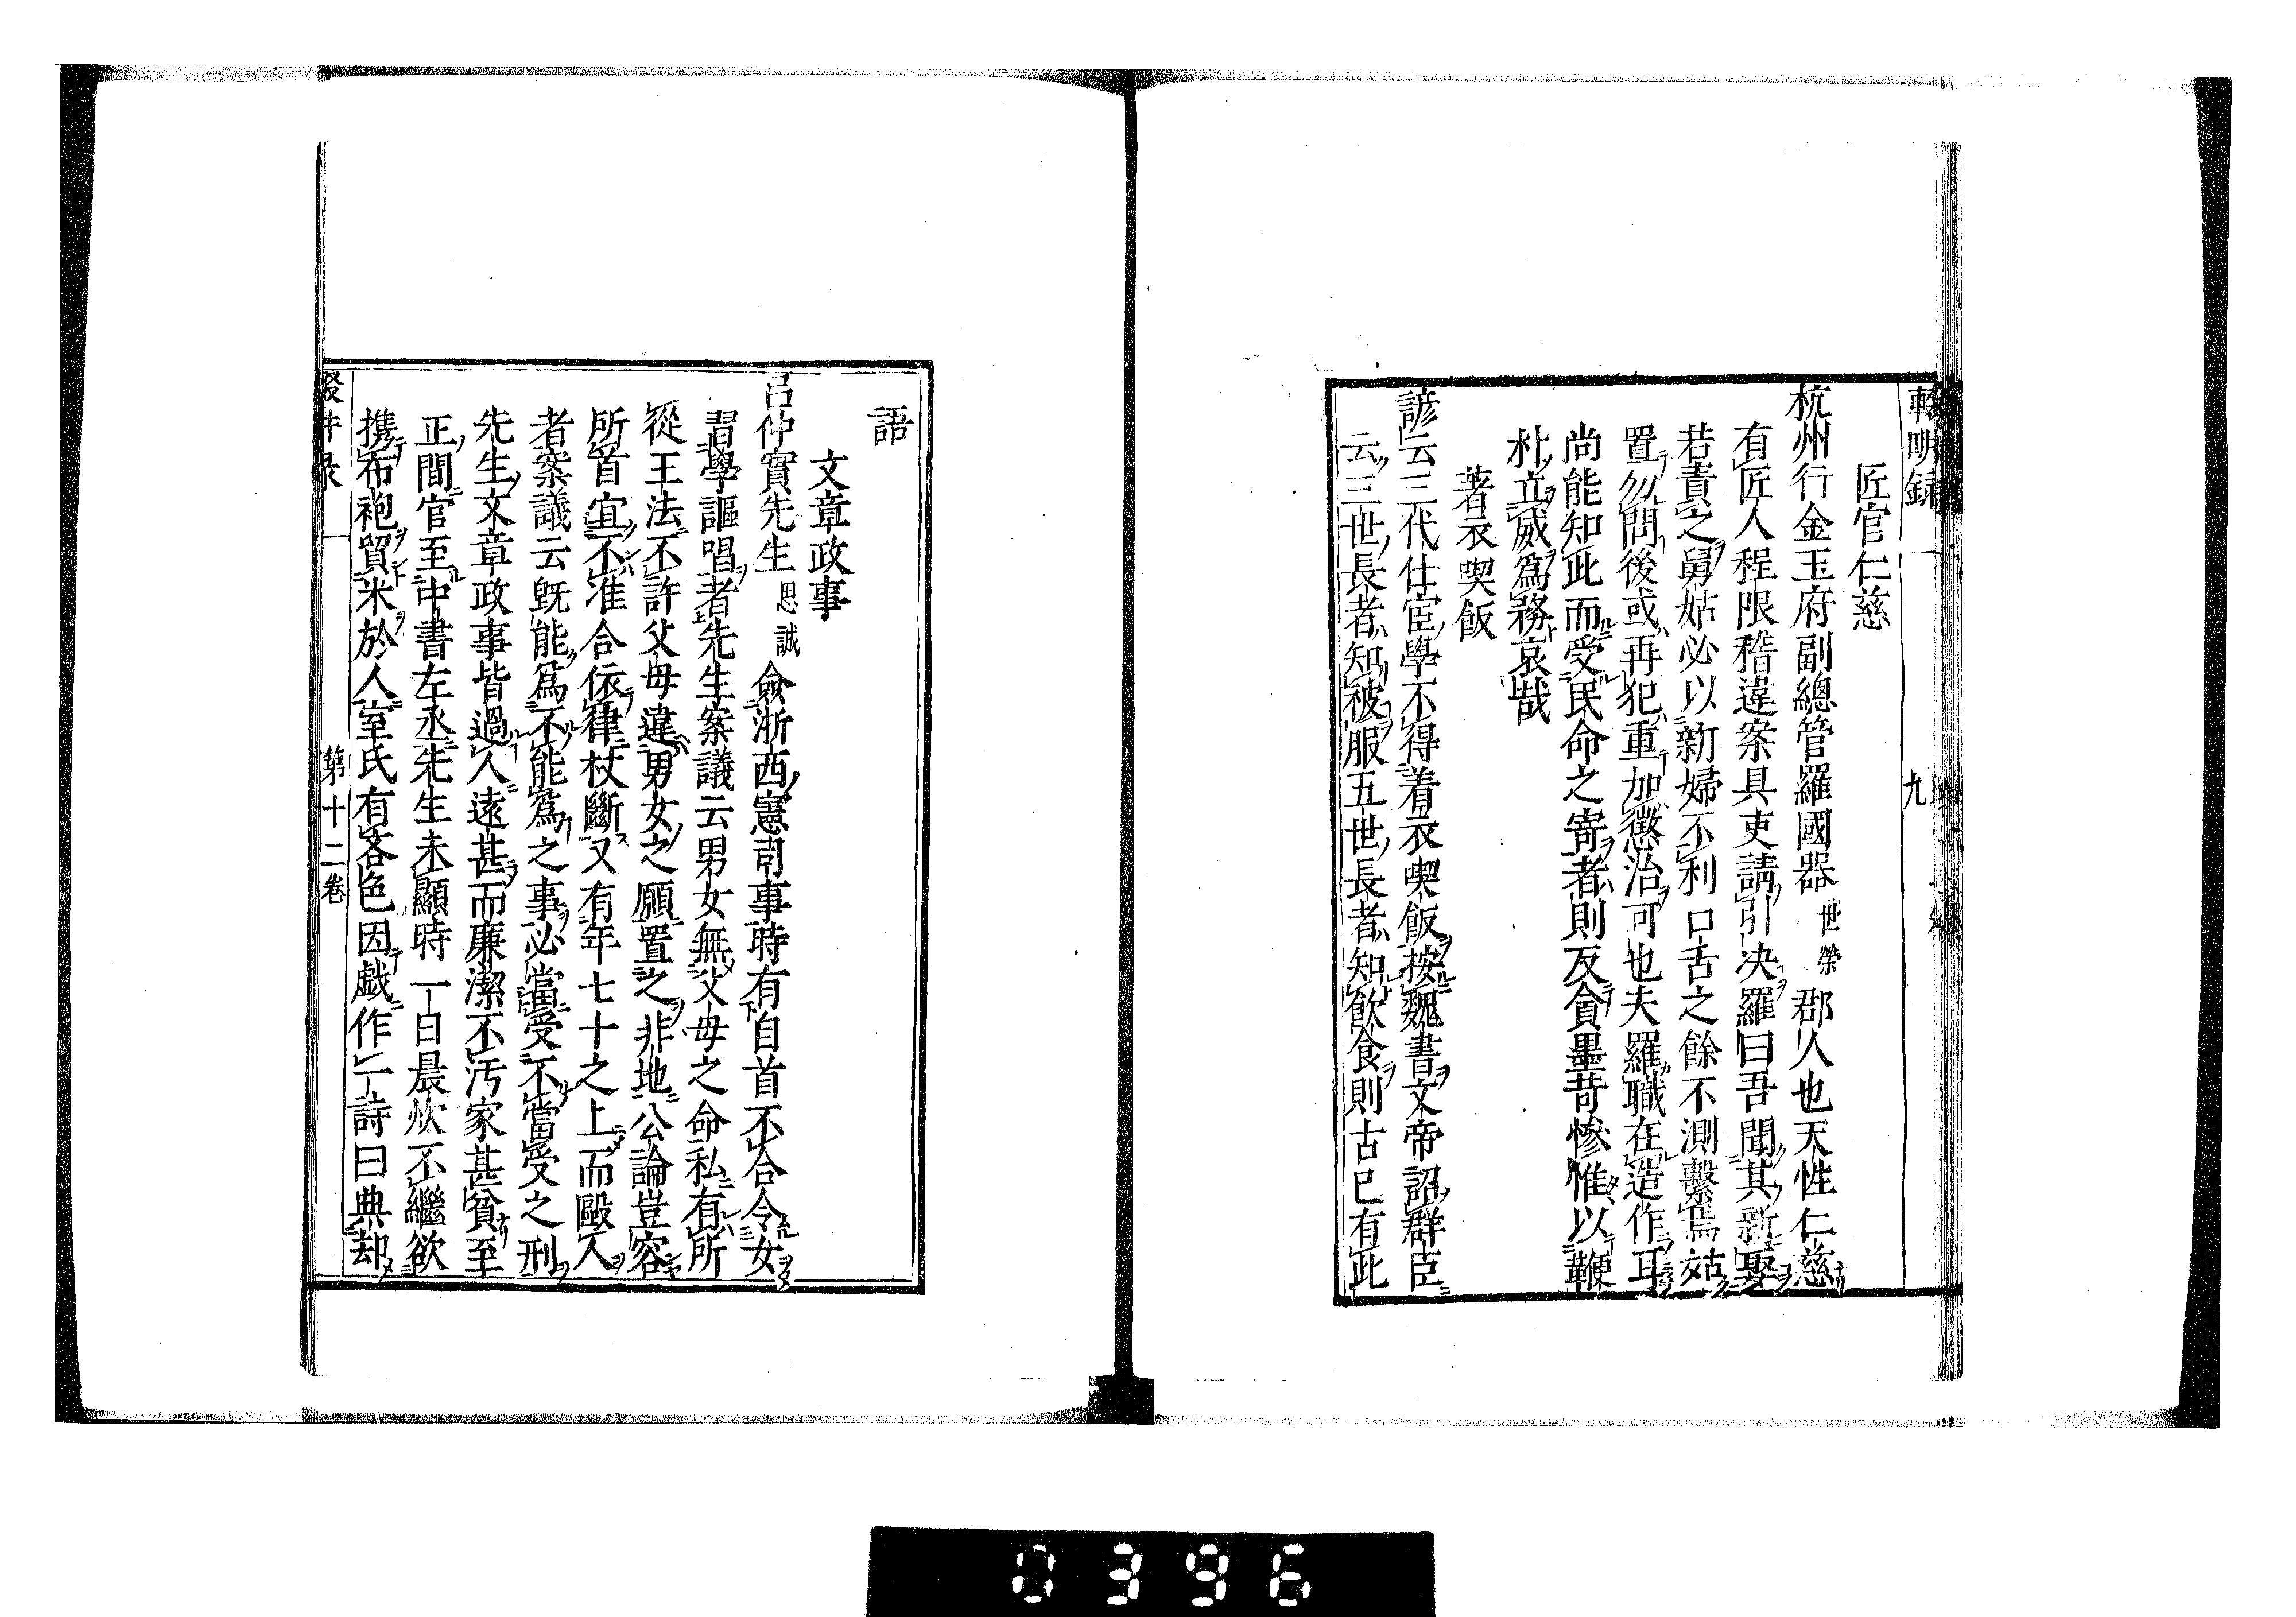 輟畊録
九
匠官仁慈
杭州行金玉府副總管羅國器世榮郡人也天性仁慈
有匠人程限稽違案具吏請引决羅曰吾聞其新娶
若責之舅姑必以新婦不利口舌之餘不測繫焉姑
置勿問後或再犯重加懲治可也夫羅職在造作耳
尚能知此而受民命之寄者則反貪墨苛慘惟以鞭
朴立威爲務哀哉
著衣喫飯
諺云三代仕宦學不得着衣喫飯按魏書文帝詔群臣
云三世長者知被服五世長者知飲食則古已有此
語
文章政事
呂仲實先生思誠僉浙西憲司事時有自首不合令女
習學謳唱者先生案議云男女無父母之命私有所
從王法不許父母違男女之願置之非地公論豈容
所首宜不准合依律杖斷又有年七十之上而毆人
者案議云旣能爲不能爲之事必當受不當受之刑
先生文章政事皆過人遠甚而廉潔不汚家甚貧至
正間官至中書左丞先生未顯時一日晨炊不繼欲
携布袍貿米於人室氏有吝色因戯作一詩曰典却
輟畊录
第十二卷
0396